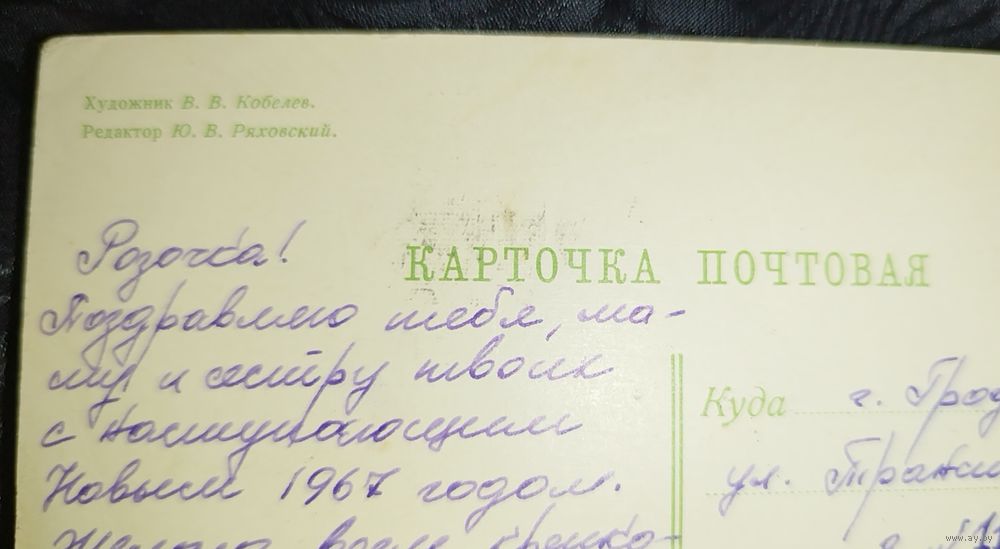 Художник В. В. Кобелев.
Редактор Ю. В. Ряховский.
КАРТОЧКА ПОЧТОВАЯ
Розочка!
Поздравляю тебя, ма-
му и сестру твоих
с наступающим
Новым 1967 годом.
Желаю всем крепко-
Куда г. Грод
ул.
www.ay.by